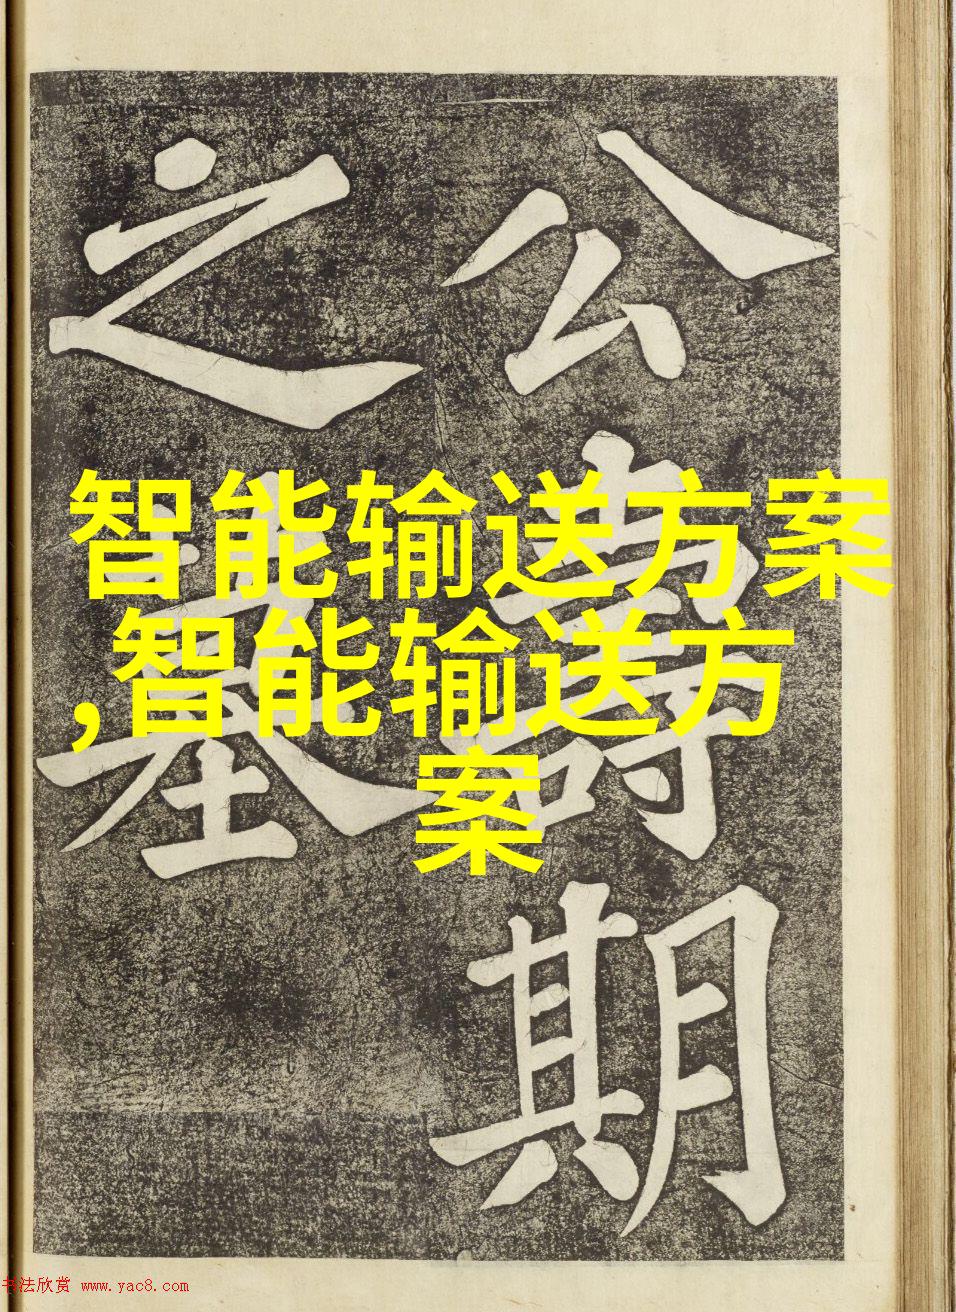 公壽期
之墓
智能输送方案
,智能输送方
案
书法欣赏 www.yac8.com